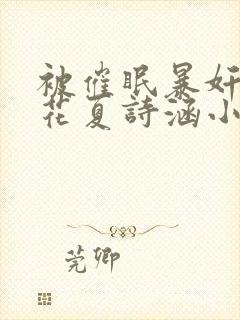 被催眠暴奸
花夏詩涵小
莞卿